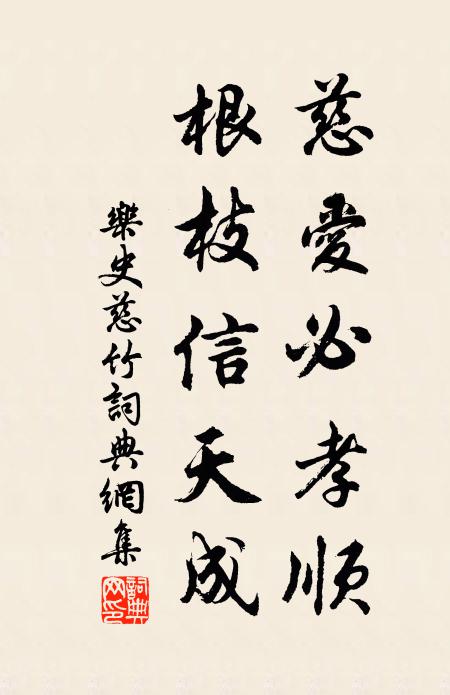 慈愛必孝順
根枝信天成
樂史慈竹詞典網集
詞典網印